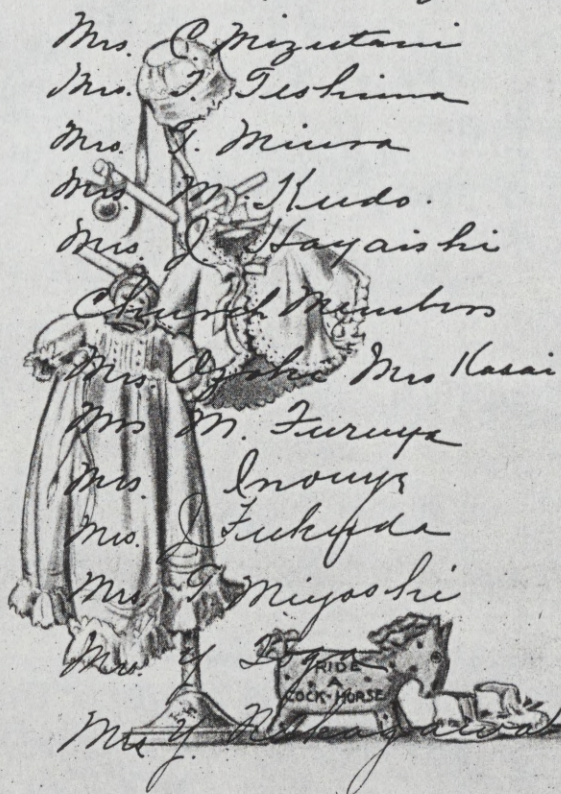 Mrs. C. Mizutani
Mrs. T. Teshima
Mrs. T. Miura
Mrs. M. Kudo.
Mrs. J. Hayaishi
Church Members
Mrs Ozaki Mrs Kasai
Mrs M. Furuya
Mrs. Inouye
Mrs. J Fukuda
Mrs. T. Miyoshi
Mrs. Y
RIDE
A
COCK-HORSE
Mrs Y. Nakagawa